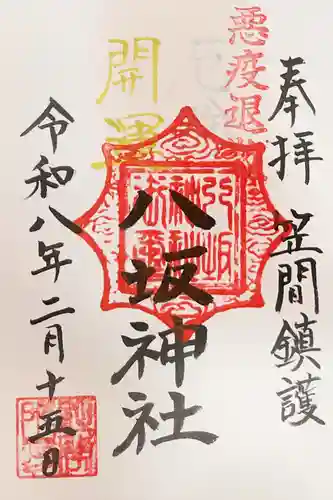 奉拝 笠間鎮護
悪疫退散
開運
八坂神社
令和八年二月十五日